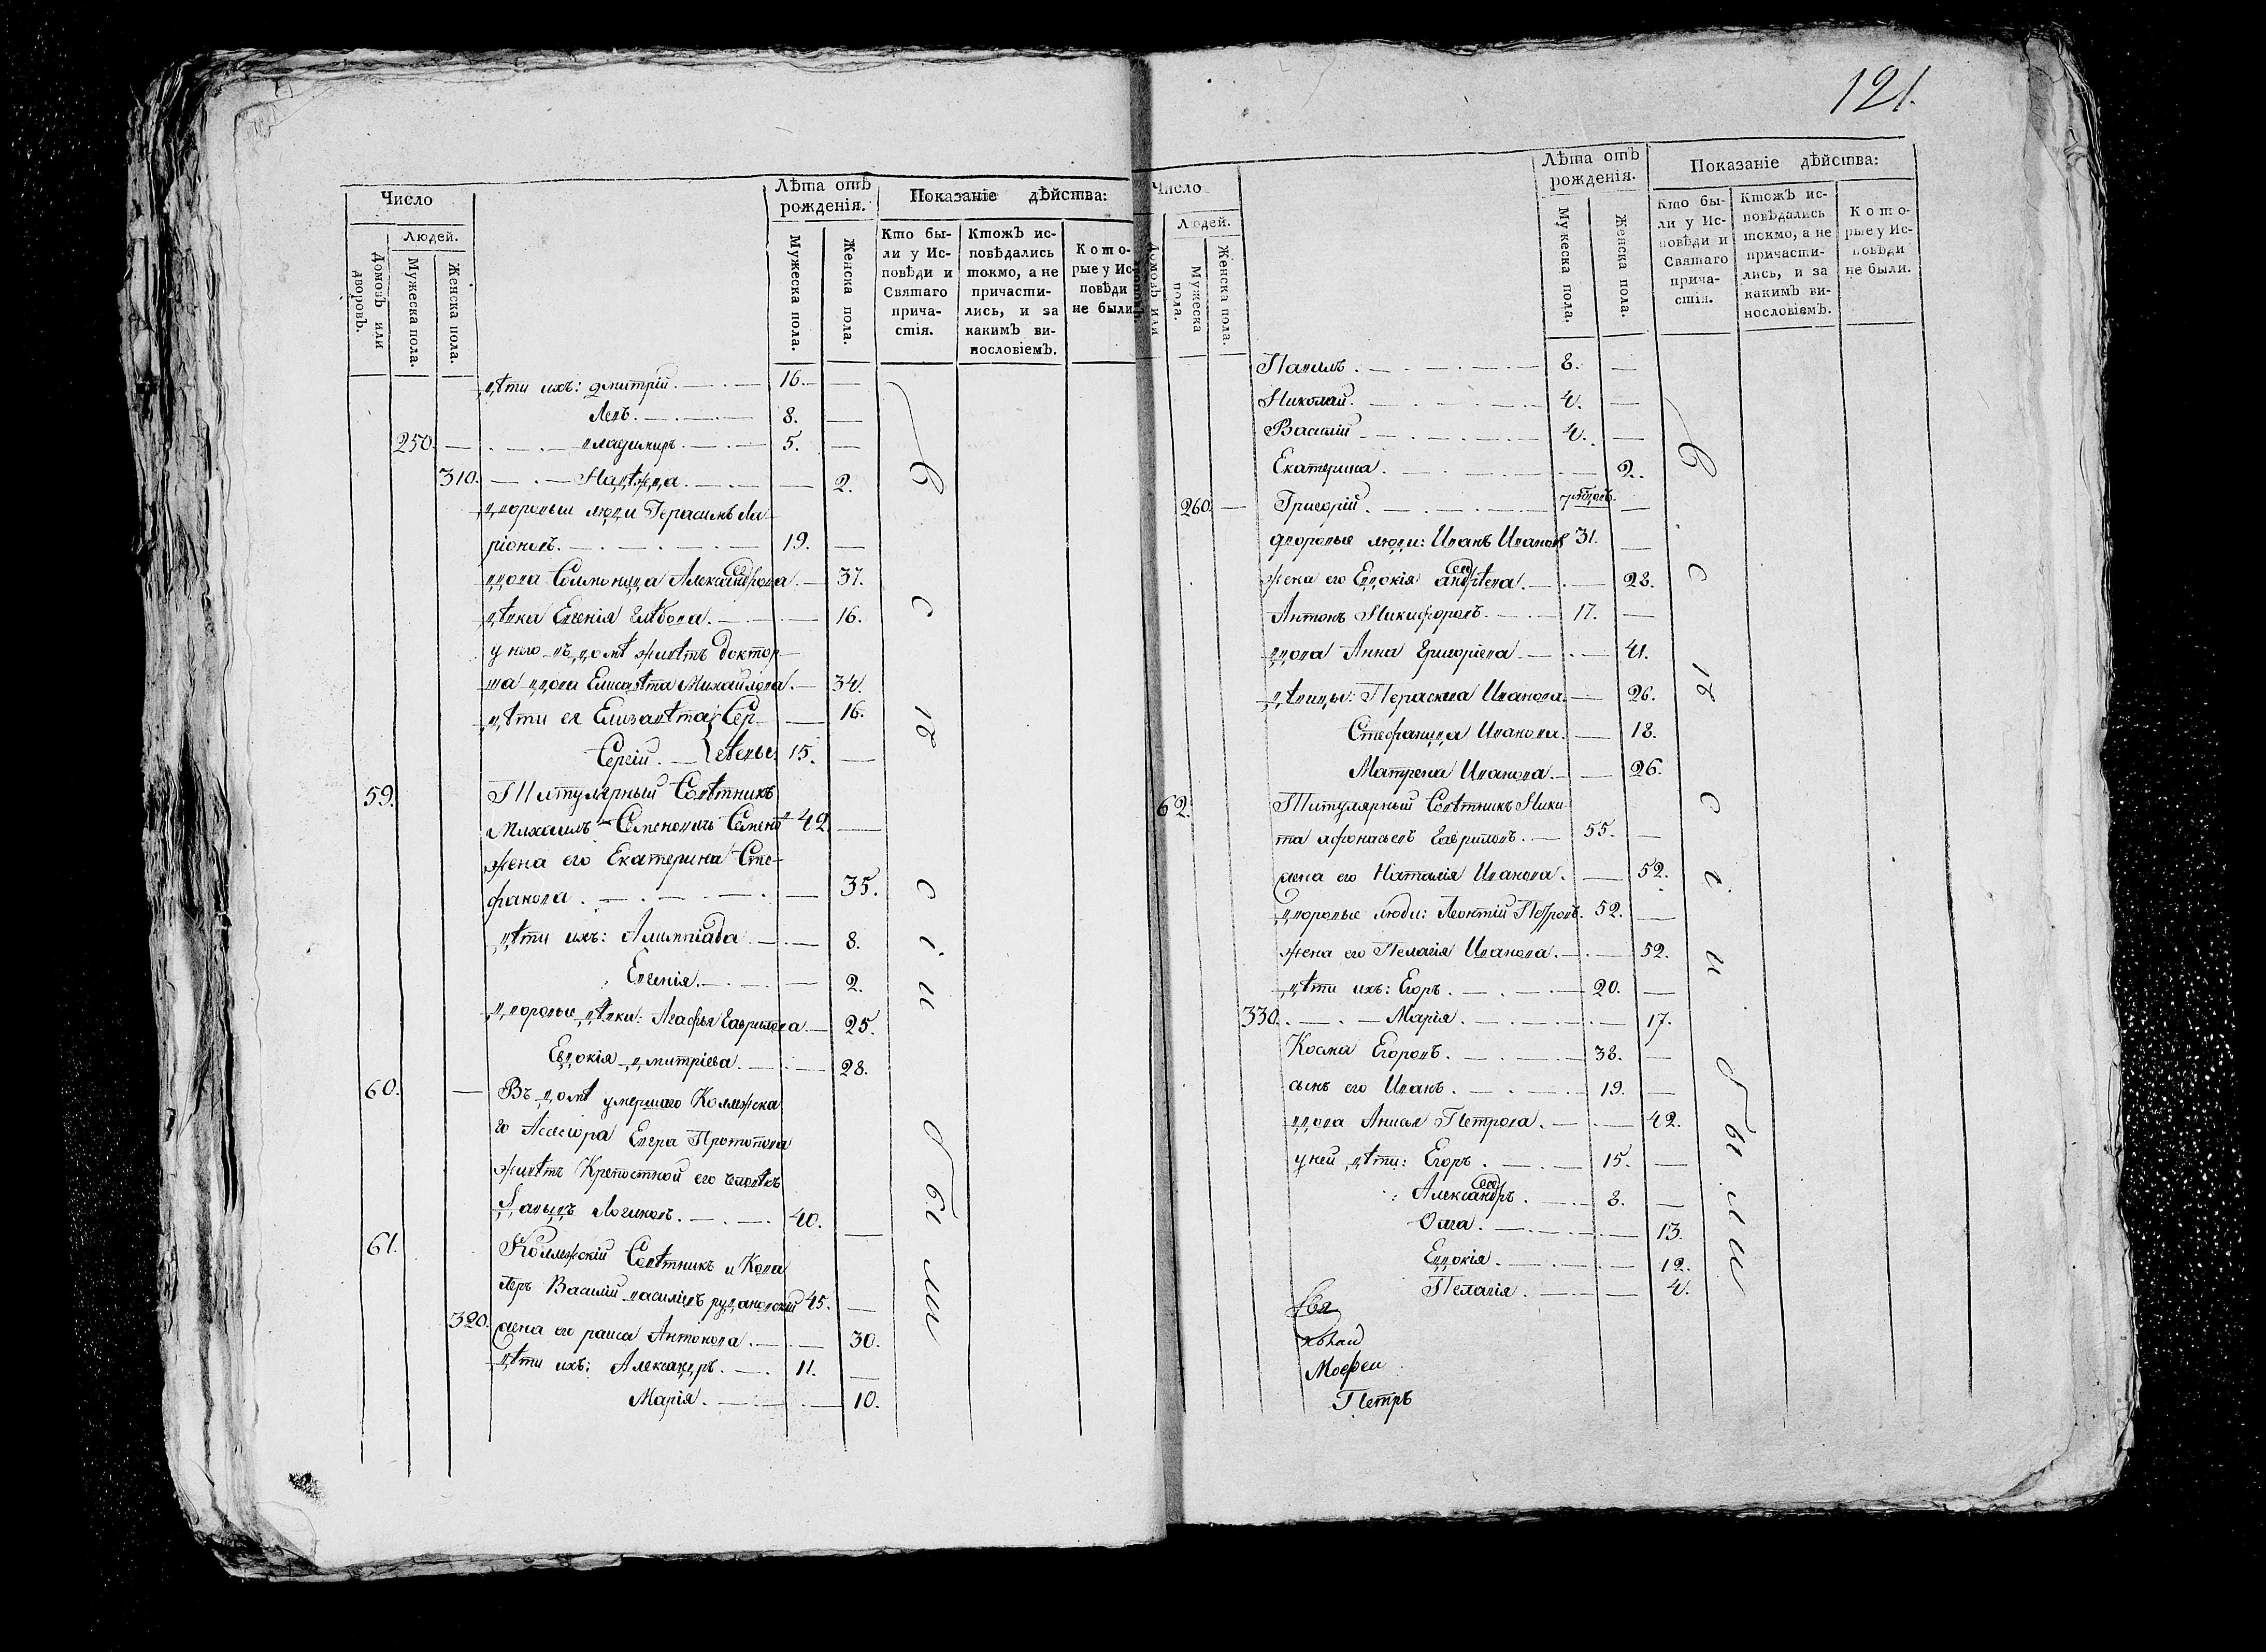 121.
Число
Людей.
Домовъ или дворовъ.
Мужеска пола.
Женска пола.
Лѣта отъ рожденія.
Мужеска пола.
Женска пола.
Показаніе дѣйства:
Кто были у Исповѣди и Святаго причастія.
Ктожъ исповѣдались токмо, а не причастились, и за какимъ винословіемъ.
Которые у Исповѣди не были.
дѣти ихъ: Дмитрій. 16.
Левъ. 8.
250. Владимиръ. 5.
310. Надѣжда. 2.
дворовыи люди Герасимъ Ла-
ріоновъ. 19.
вдова Соломонида Александрова 37.
дѣвка Евгенія Глѣбова. 16.
у него въ домѣ живѣтъ доктор-
ша вдова Елисавѣта Михайлова. 34.
дѣти ея Елизавѣта Сер- 16.
Сергій. гѣевы. 15.
59. Титулярный Совѣтникъ
Михаилъ Семеновичь Семено 42.
жена его Екатерина Сте-
фанова. 35.
дѣти ихъ: Алимпіада 8.
Евгенія. 2.
дворовые дѣвки: Агафья Гаврилова 25.
Евдокія Дмитріева. 28.
60. Въ домѣ умершаго Коллежска
го Асесора Егора Протопопова
живѣтъ Крепостной его человѣкъ
Давыдъ Логиновъ. 40.
61. Коллежскій Совѣтникъ и Кава
леръ Василій Василіевъ Рудановскій 45.
320. жена его раиса Антонова. 30.
дѣти ихъ: Александръ. 11.
Марія. 10.
Всѣ сіи были
Число
Людей.
Домовъ или дворовъ.
Мужеска пола.
Женска пола.
Лѣта отъ рожденія.
Мужеска пола.
Женска пола.
Показаніе дѣйства:
Кто были у Исповѣди и Святаго причастія.
Ктожъ исповѣдались токмо, а не причастились, и за какимъ винословіемъ.
Которые у Исповѣди не были.
Павелъ. 8.
Николай. 4.
Василій 4.
Екатерина. 2.
260. Григорій.
дворовые люди: Иванъ Ивановъ 31.
жена его Евдокія Андрѣева. 28.
Антонъ Никифоровъ. 17.
вдова Анна Григоріева 41.
дѣвицы: Параскева Иванова. 26.
Стефанида Иванова. 18.
Матрена Иванова. 26.
62. Титулярный Совѣтникъ Ники-
та Афонасьевъ Гавриловъ. 55.
жена его Наталія Иванова. 52.
дворовые люди: Леонтій Петровъ. 52.
жена его Пелагія Иванова. 52.
дѣти ихъ: Егоръ. 20.
330. Марія. 17.
Косма Егоровъ. 38.
сынъ его Иванъ. 19.
вдова Анисья Петрова. 42.
у ней дѣти: Егоръ. 15.
Александръ. 8.
Олга. 13.
Евдокія. 12.
Пелагія. 4.
Мосфеи
Петръ